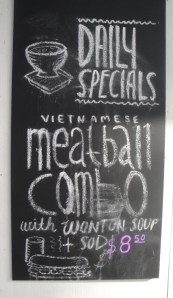 DAILY
SPECIALS
VIETNAMESE
meatball
combo
with WONTON SOUP
+ SODA $8.50